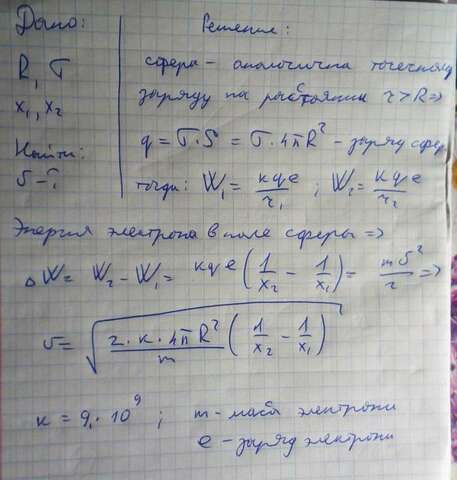 Дано:
Решение:
R, σ
x₁, x₂
Найти:
υ - ?
сфера - аналогична точечному
заряду на расстоянии r > R =>
q = σ · S = σ · 4πR² - заряд сфер
тогда: W₁ = kqe/r₁ ; W₂ = kqe/r₂
Энергия электрона в поле сферы =>
ΔW = W₂ - W₁ = kqe (1/x₂ - 1/x₁) = mυ²/2 =>
υ = √(2·k·4πR²/m (1/x₂ - 1/x₁))
k = 9·10⁹ ; m - масса электрона
e - заряд электрона